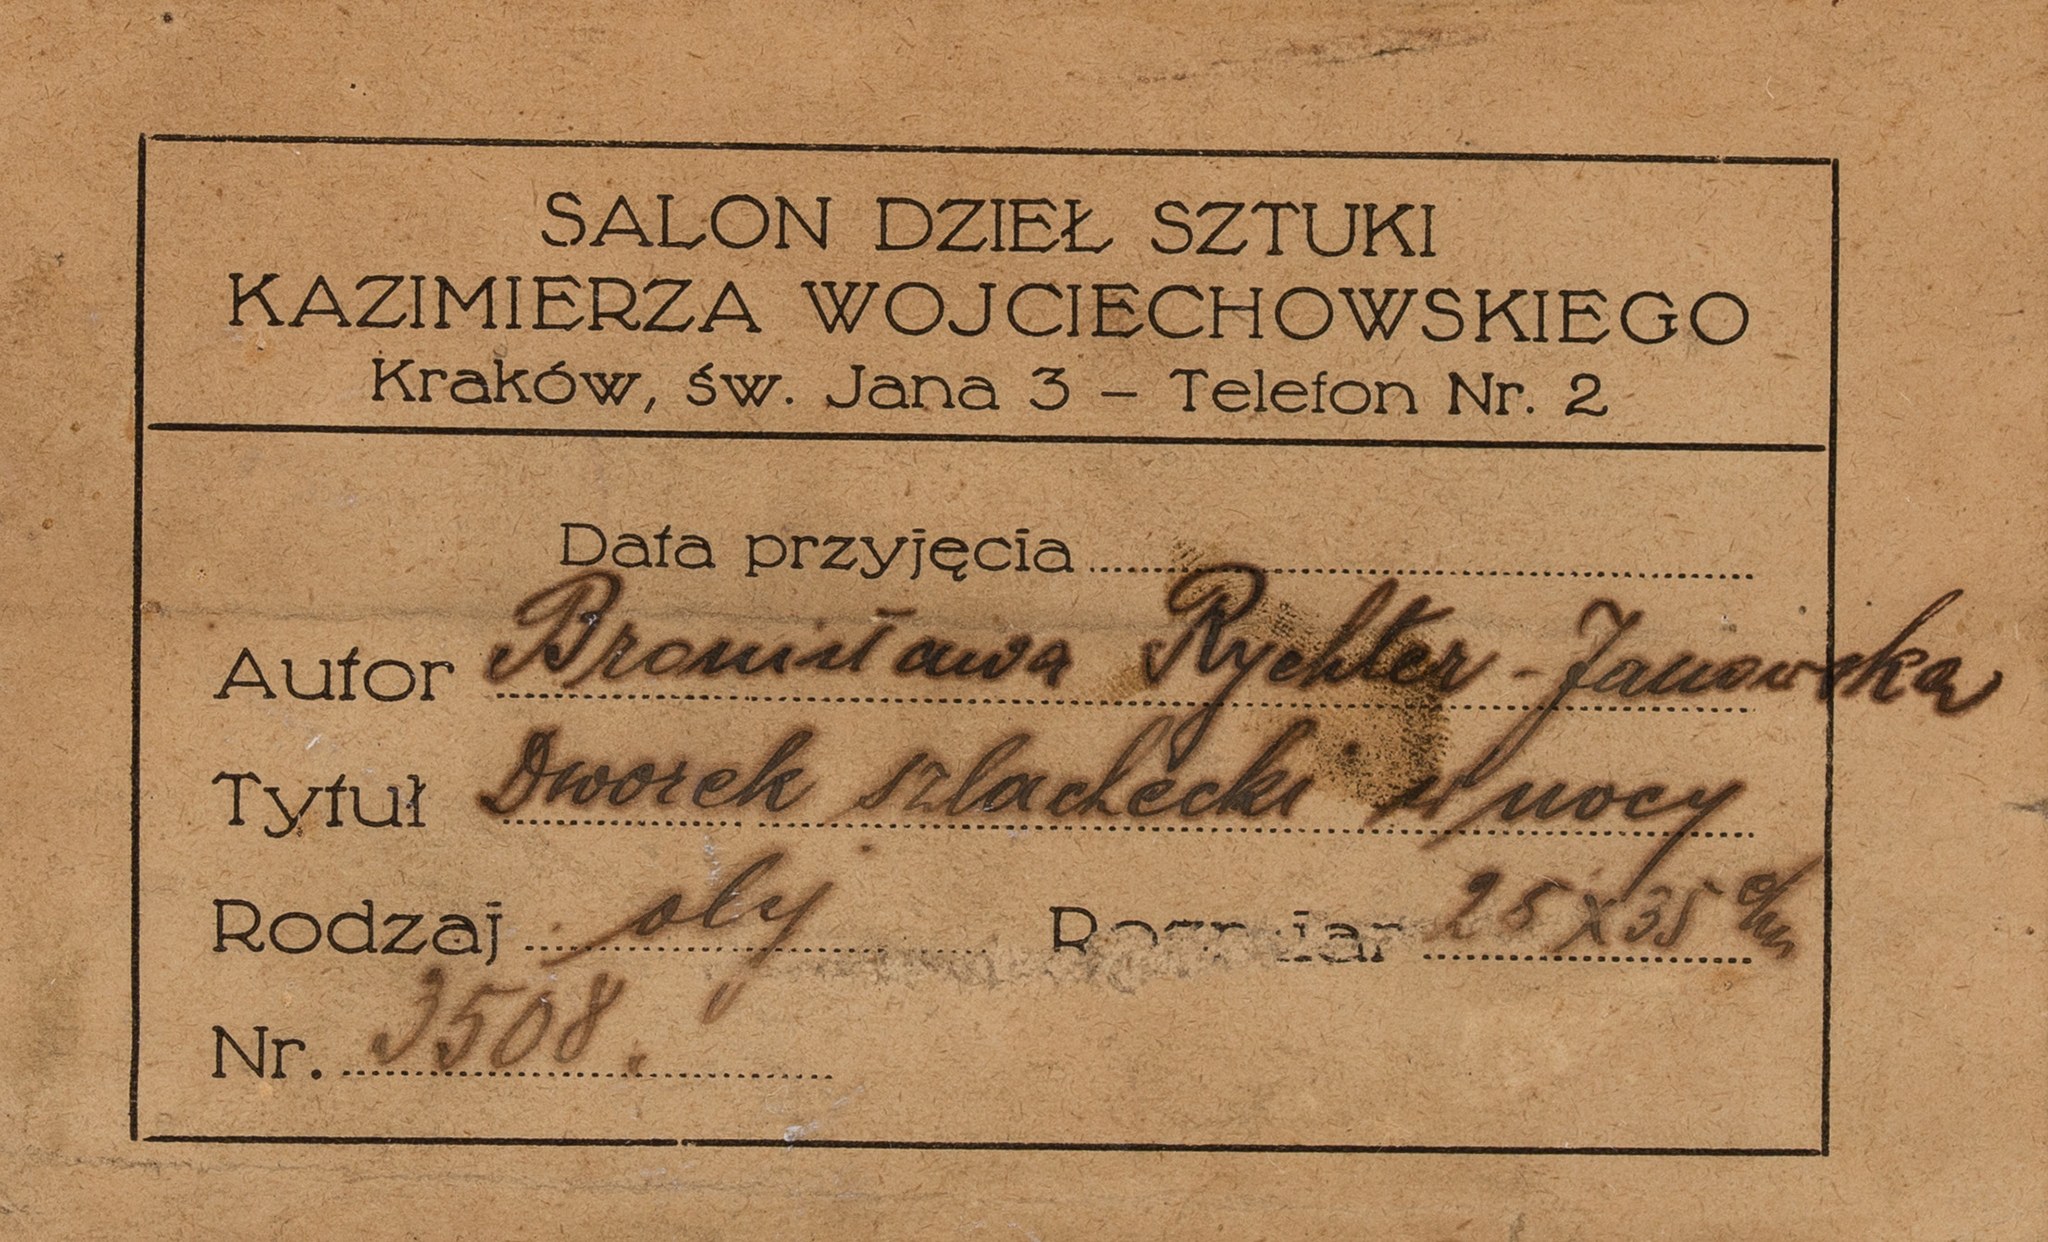 SALON DZIEŁ SZTUKI
KAZIMIERZA WOJCIECHOWSKIEGO
Kraków, św. Jana 3 – Telefon Nr. 2
Data przyjęcia
Autor Bronisława Rychter-Janowska
Tytuł Dworek szlachecki w nocy
Rodzaj olej Rozmiar 25 x 35 c/m
Nr. 3508.